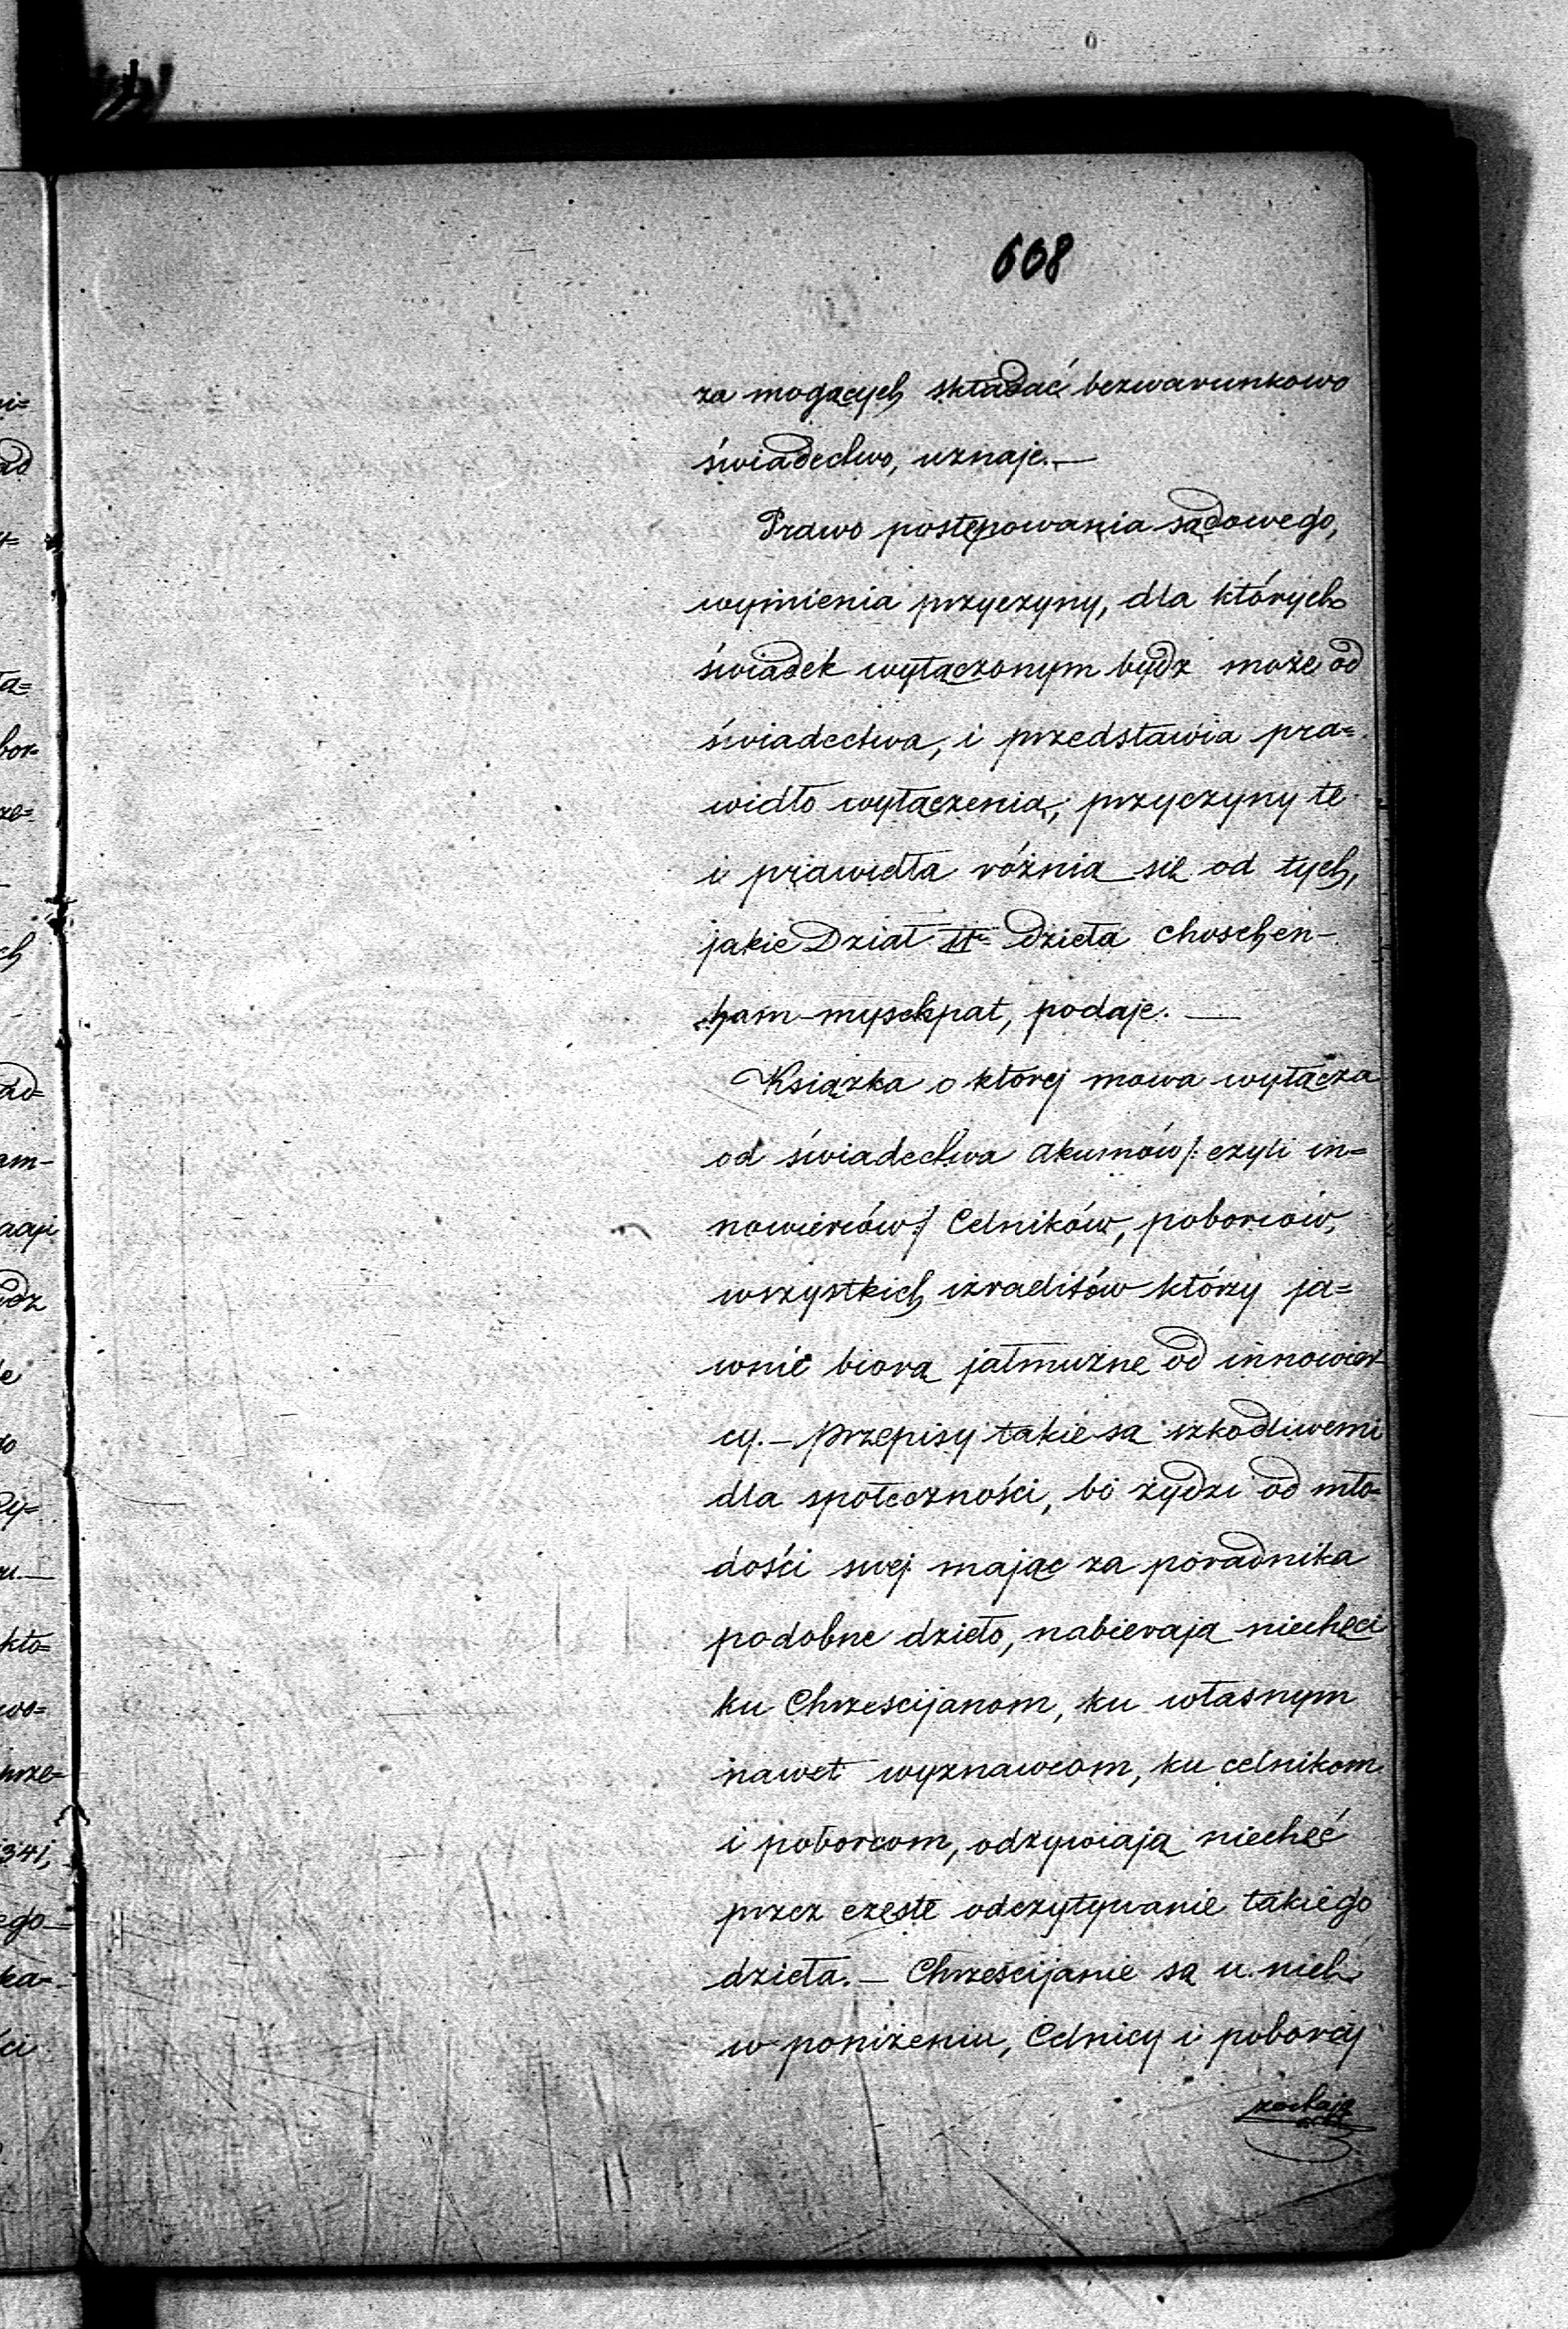 608
za mogących składać bezwarunkowo
świadectwo, uznaje.—
Prawo postępowania sądowego,
wymienia przyczyny, dla których
świadek wyłączonym bydz może od
świadectwa, i przedstawia pra=
widło wyłączenia, przyczyny te
i prawidła różnią się od tych,
jakie Dział II dzieła choschen-
ham-myschpat, podaje. —
Książka o której mowa wyłącza
od świadectwa akumów /: czyli in=
nowierców :/ Celników, poborców,
wszystkich izraelitów którzy ja=
wnie biorą jałmużnę od innowier
cy. — przepisy takie są szkodliwemi
dla społeczności, bo żydzi od mło=
dości swej mając za poradnika
podobne dzieło, nabierają niechęci
ku Chrześcijanom, ku własnym
nawet wyznawcom, ku celnikom
i poborcom, odżywiają niechęć
przez częste odczytywanie takiego
dzieła. — Chrześcijanie są u nich
w poniżeniu, Celnicy i poborcy
ni=
ad
ła=
bor-
ze=
ch
ad=
am-
aaji
idz
kło=
wo=
prze=
341,
ego—
ka=
ci